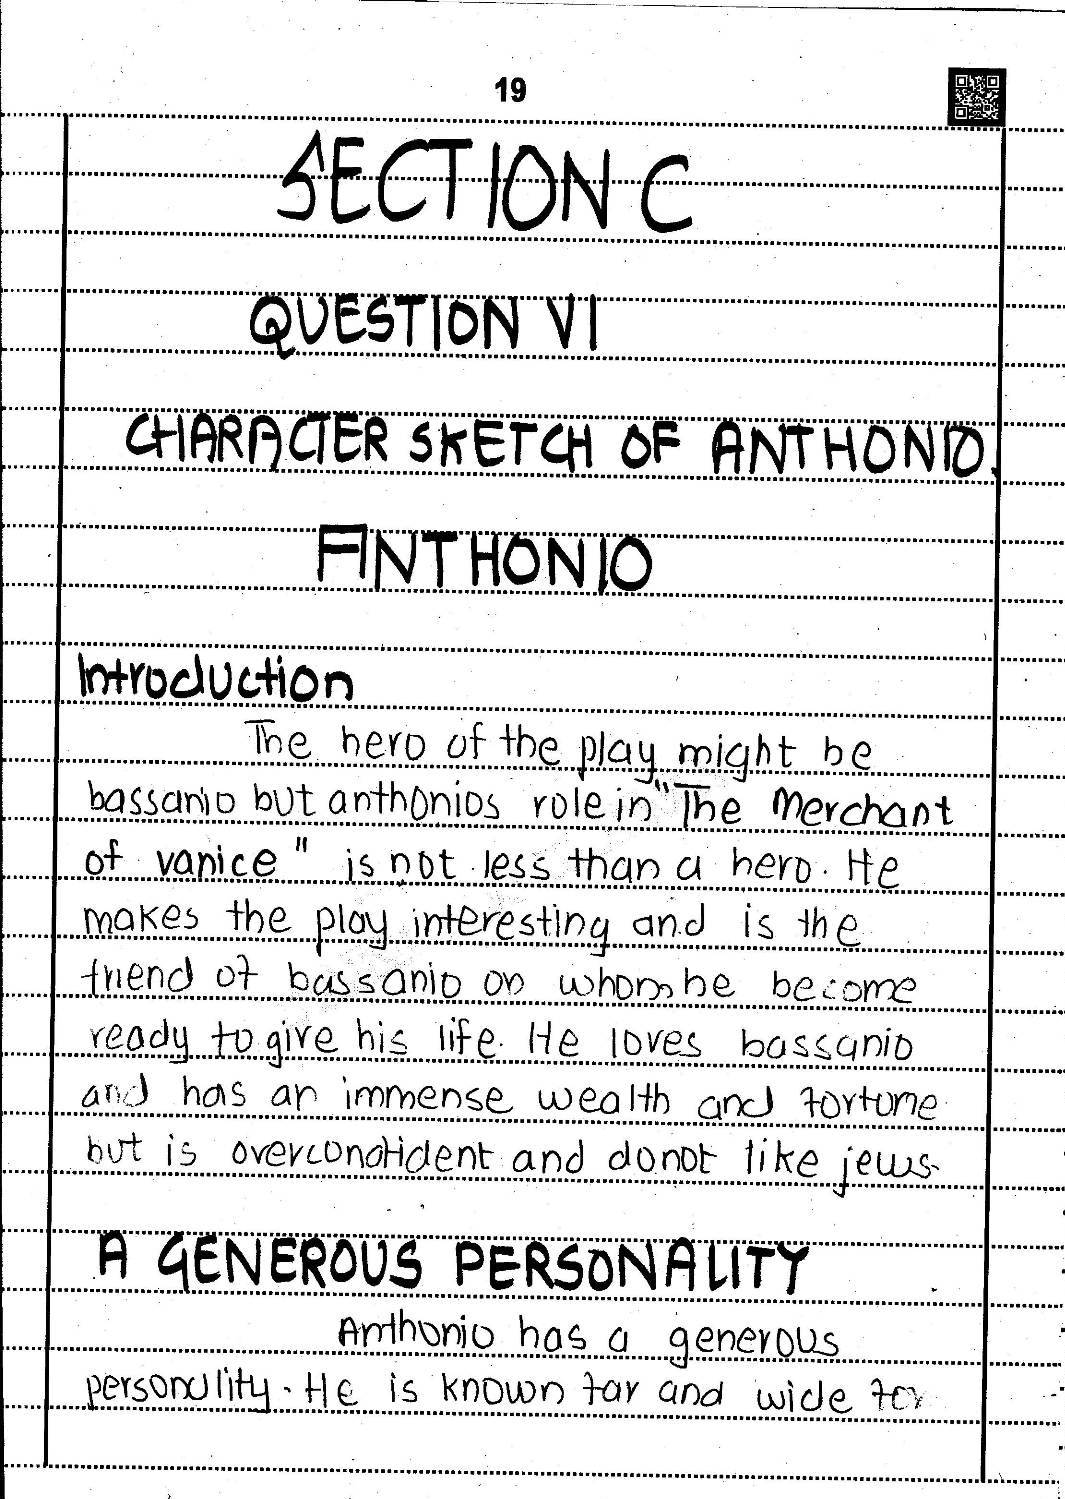 19
SECTION C
QUESTION VI
CHARACTER SKETCH OF ANTHONIO.
ANTHONIO
Introduction
The hero of the play might be
bassanio but anthonios role in "The Merchant
of vanice" is not less than a hero. He
makes the play interesting and is the
friend of bassanio on whom he become
ready to give his life. He loves bassanio
and has an immense wealth and fortune
but is overconfident and donot like jews.
A GENEROUS PERSONALITY
Anthonio has a generous
personality. He is known far and wide for